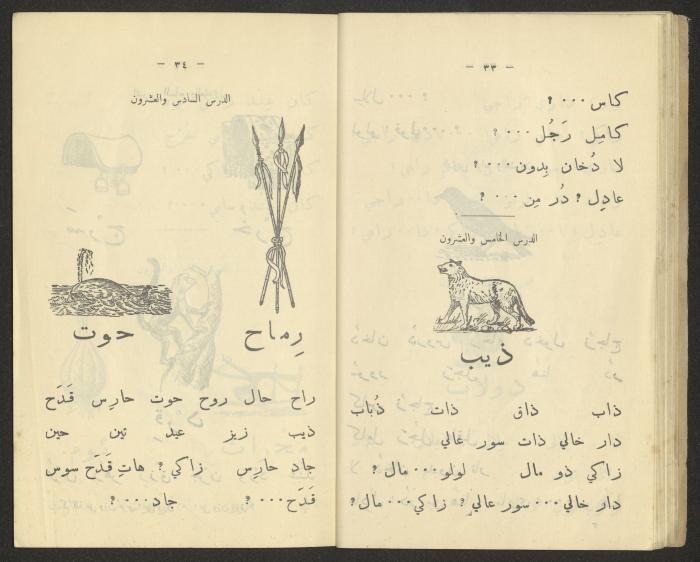 - ٣٣ -
كاس ٠٠٠ ؟
كامِل رَجُل ٠٠٠ ؟
لا دُخان بِدون ٠٠٠ ؟
عادِل ؟ دُر مِن ٠٠٠ ؟
الدرس الخامس والعشرون
ذيب
ذاب ذاق ذات ذُباب
دار خالي ذات سور عالي
زاكي ذو مال لولو ٠٠٠ مال ؟
دار خالي ٠٠٠ سور عالي ؟ زاكي ٠٠٠ مال ؟
- ٣٤ -
الدرس السادس والعشرون
رِماح
حوت
راح حال روح حوت حارِس قَدَح
ذيب زيز عيد تين حين
جاد حارِس زاكي ؟ هاتِ قَدَح سوس
قَدَح ٠٠٠ ؟ جاد ٠٠٠ ؟